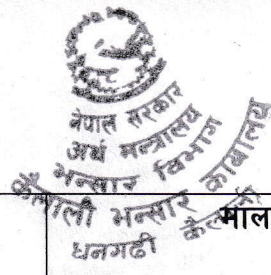 नेपाल सरकार
अर्थ मन्त्रालय
भन्सार विभाग
कैलाली भन्सार कार्यालय
धनगढी कैलाली
माल